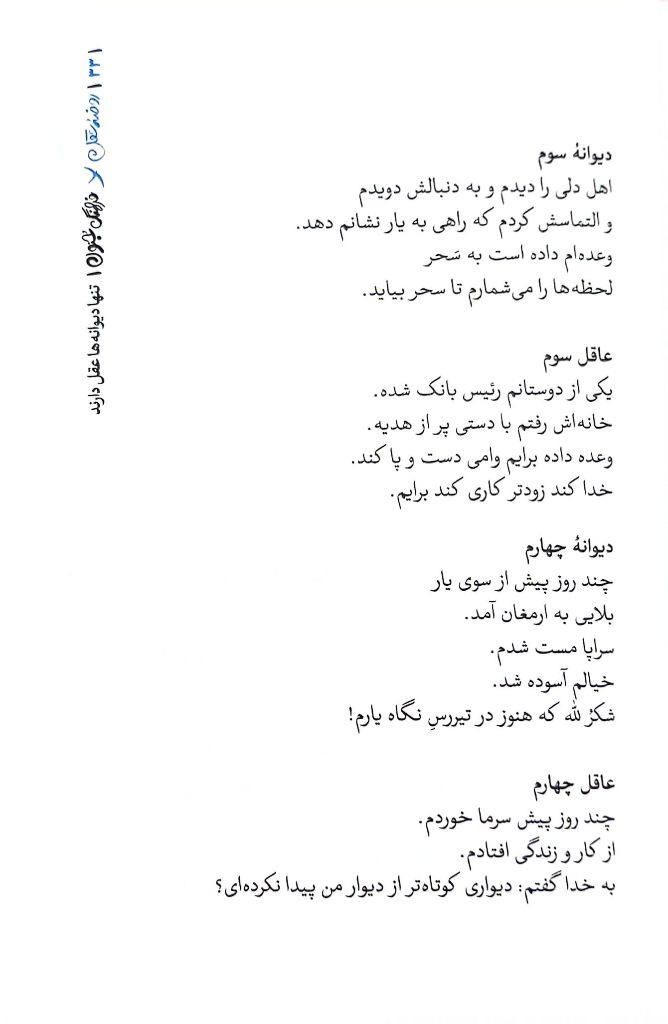 دیوانهٔ سوم
اهل دلی را دیدم و به دنبالش دویدم
و التماسش کردم که راهی به یار نشانم دهد.
وعده‌ام داده است به سَحر
لحظه‌ها را می‌شمارم تا سحر بیاید.
عاقل سوم
یکی از دوستانم رئیس بانک شده.
خانه‌اش رفتم با دستی پر از هدیه.
وعده داده برایم وامی دست و پا کند.
خدا کند زودتر کاری کند برایم.
دیوانهٔ چهارم
چند روز پیش از سوی یار
بلایی به ارمغان آمد.
سراپا مست شدم.
خیالم آسوده شد.
شکرُ لله که هنوز در تیررسِ نگاه یارم!
عاقل چهارم
چند روز پیش سرما خوردم.
از کار و زندگی افتادم.
به خدا گفتم: دیواری کوتاه‌تر از دیوار من پیدا نکرده‌ای؟
تنها دیوانه‌ها عقل دارند | ۳۳ |